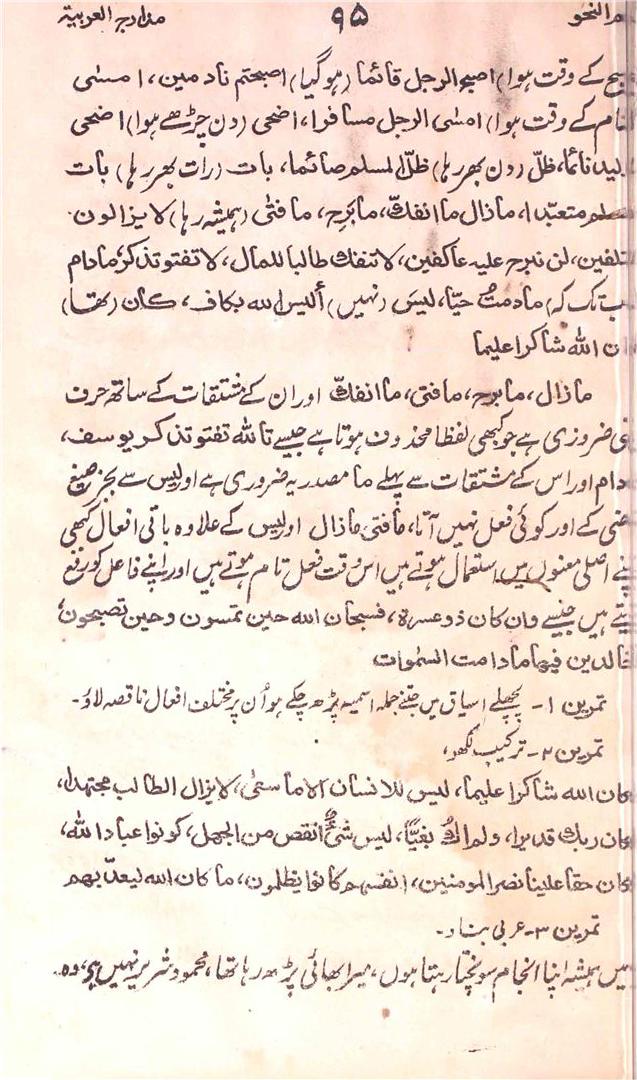 النحو ۹۵ مدارج العربیۃ
کے وقت ہوا) اصبح الرجل قائما (ہو گیا) اصبحتم نادمین، امسٰی
کے وقت ہوا) امسٰی الرجل مسافرا، اضحی (دن چڑھے ہوا) اضحی
نائما، ظلّ (دن بھر رہا) ظلّ المسلم صائما، بات (رات بھر رہا) بات
متعبّدا، مازال ماانفکّ، مابرح، مافتٰی (ہمیشہ رہا) لایزالون
لن نبرح علیہ عاکفین، لاتنفك طالبا للمال، لا تفتو تذکر، مادام
تک کہ) مادمتُ حیّا، لیسَ (نہیں) ألیس اللہ بکاف، کان (تھا)
اللہ شاکرا علیما
مازال، مابرح، مافتی، ماانفکّ اور ان کے مشتقات کے ساتھ حرف
ضروری ہے جو کبھی لفظا محذوف ہوتا ہے جیسے تاللہ تفتو تذکر یوسف،
اور اس کے مشتقات سے پہلے ما مصدریہ ضروری ہے اور لیس سے بجز صیغ
کے اور کوئی فعل نہیں آتا، مافتی، مازال اور لیس کے علاوہ باقی افعال کبھی
اصلی معنوں میں استعمال ہوتے ہیں اس وقت فعل تام ہوتے ہیں اور اپنے فاعل کو رفع
ہیں جیسے وان کان ذوعسرة، فسبحان اللہ حین تمسون وحین تصبحون،
فیہا مادامت السمٰوات
تمرین ۱- پچھلے اسباق میں جتنے جملہ اسمیہ پڑھ چکے ہو اُن پر مختلف افعال ناقصہ لاؤ۔
تمرین ۲- ترکیب لکھو،
کان اللہ شاکرا علیما، لیس للانسان الا ماسعٰی، لایزال الطالب مجتھدا،
کان ربك قدیرا، ولم اكُ بغیًّا، لیس شیءٌ انقص من الجھل، کونوا عباد اللہ،
کان حقا علینا نصر المومنین، انفسہم کانوا یظلمون، ماکان اللہ لیعذّبہم
تمرین ۳- عربی بناؤ۔
میں ہمیشہ اپنا انجام سونچتا رہتا ہوں، میرا بھائی پڑھ رہا تھا، محمود شریر نہیں ہے، وہ